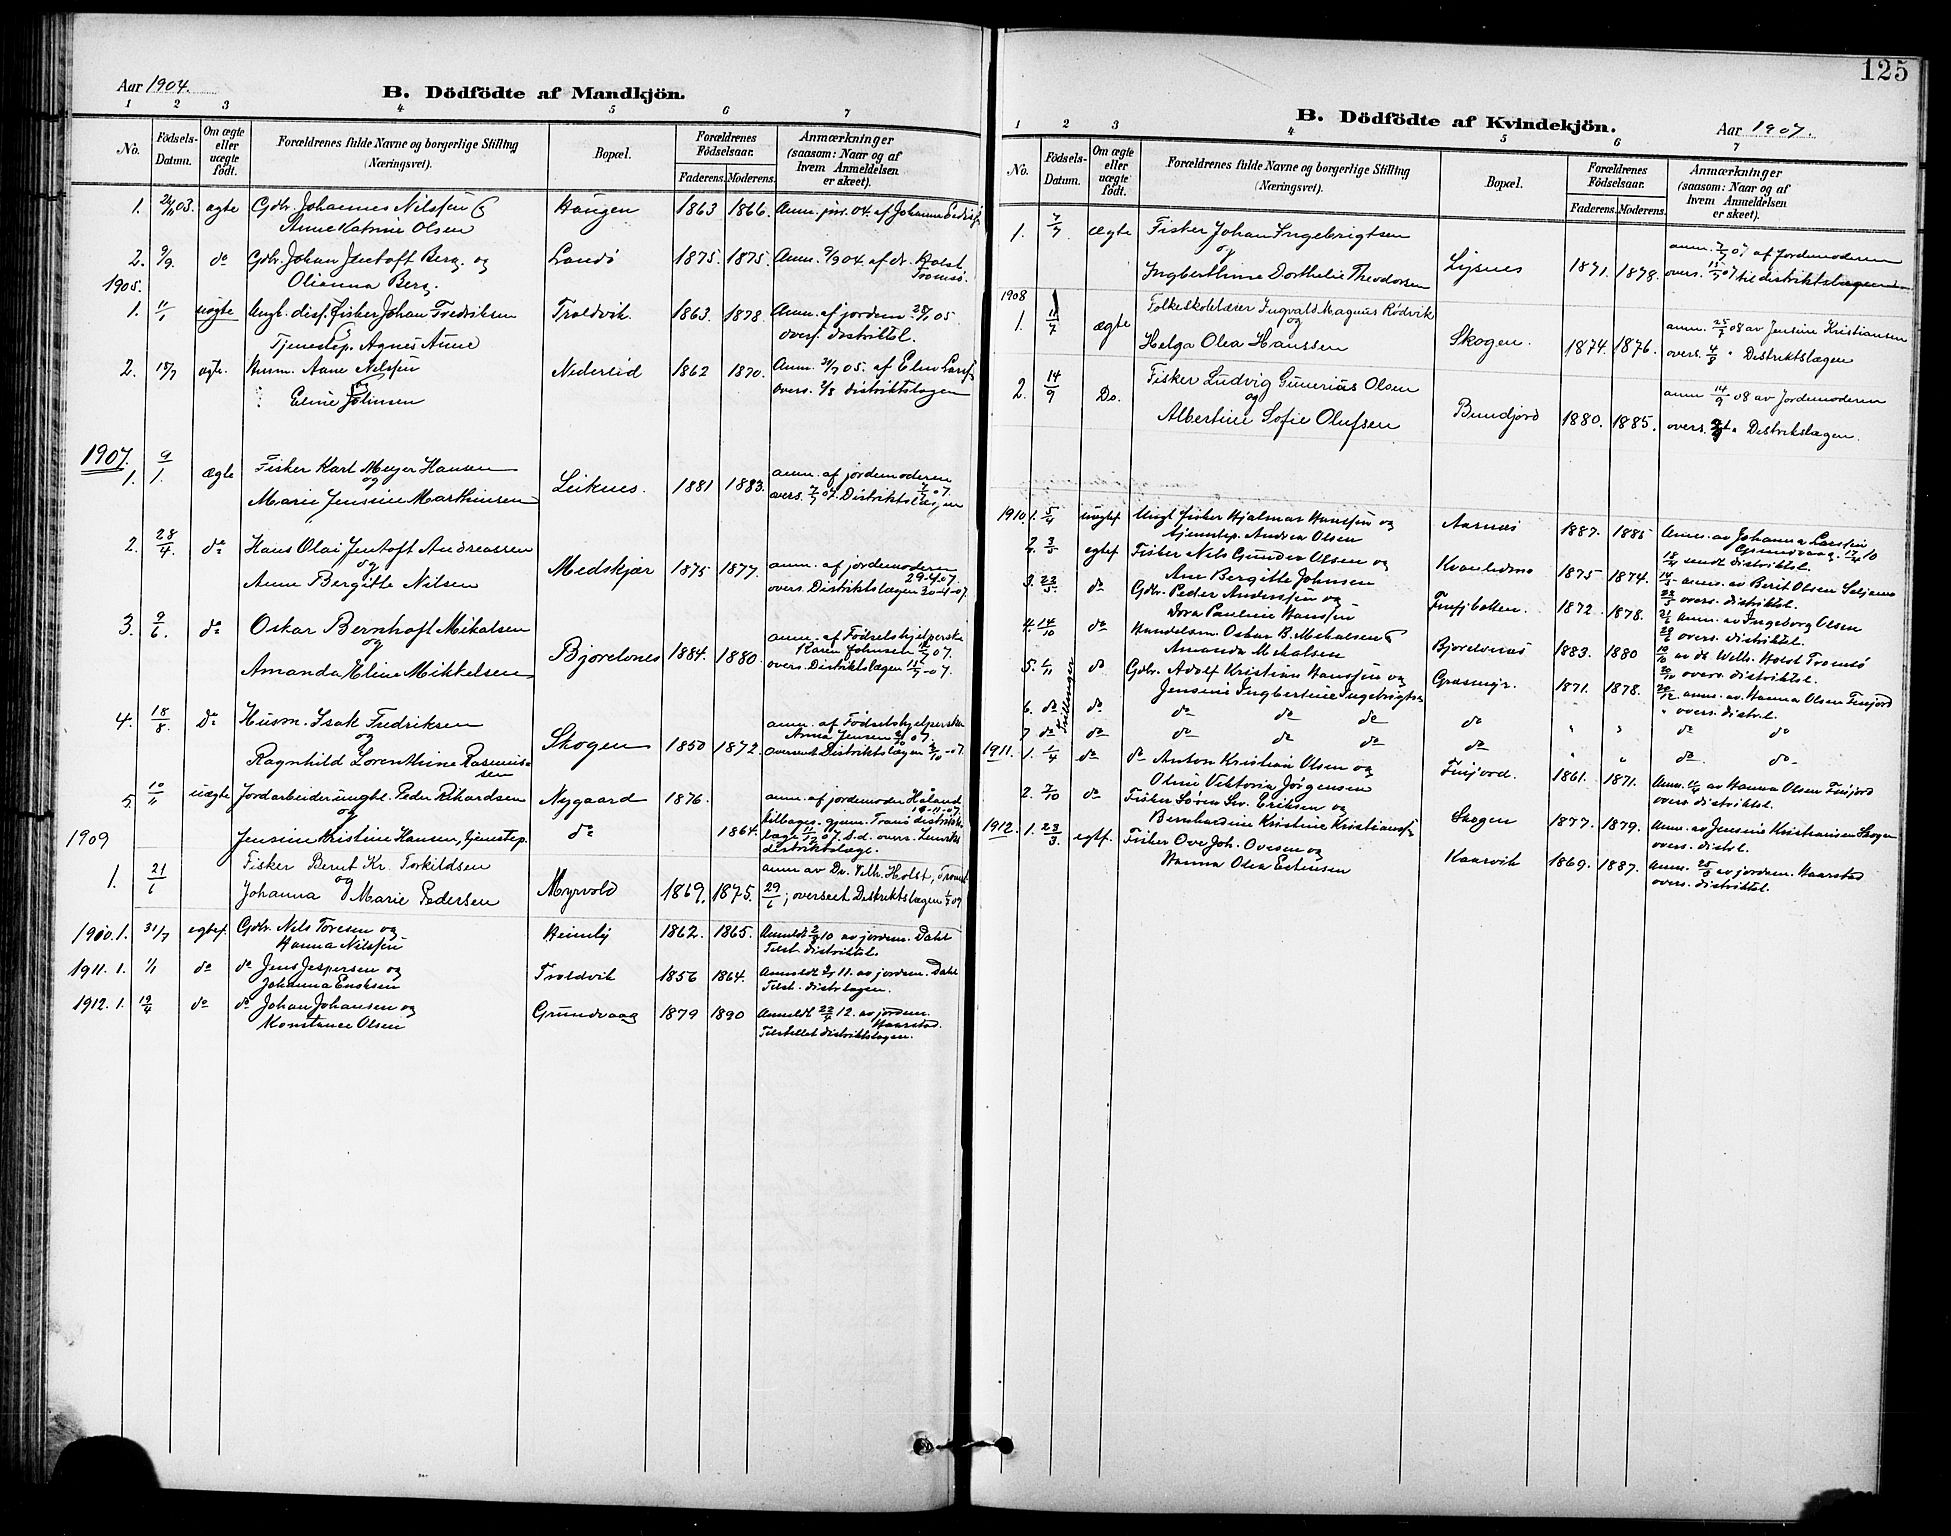 Aar 1904.
B. Dödfödte af Mandkjön.
1 2 3 4 5 6 7
No. Födsels-Datum. Om ægte eller uægte födt. Forældrenes fulde Navne og borgerlige Stilling (Næringsvei). Bopæl. Forældrenes Födselsaar. Faderens. Moderens. Anmærkninger (saasom: Naar og af hvem Anmeldelsen er skeet).
1. 03. ægte Gdbr. Johannes Nilssen & Haugen 1863 1866. Anm. 04. af Johanna
Anne Katrine Olsen
2. 9/9. do Gdbr. Johan Jentoft Berg og Landö 1875. 1875. Anm. 9/9 04. af dr. Holst
Olianna Berg. Tromsö.
1905.
1. 11/1 uægte Ungk. disp. fisker Johan Fredriksen Troldvik. 1863. 1878. Anm. af jordem 28/1 05.
Tjenestep. Agnes Aune overs. distriktsl.
2. 18/7 ægte. Husm. Aane Nilssen Nedereid 1862 1870. Anm. 05. af Eline
og Eline Johnsen overs. 2/8 distriktslægen
1907.
1. 9/1. ægte Fisker Karl Meyer Hansen anm. af jordemoderen
og Leiknes. 1881 1883. 7/7 07.
Marie Jensine Marthinsen overs. 7/7 07. Distriktslægen
2. 28/4. do Hans Olai Jentoft Andreassen anm. af jordemoderen
og Medskjær 1875 1877. 29-4-07.
Anne Bergitte Nilsen overs. Distriktslægen 30-4-07.
3. 9/6. do Oskar Bernhoft Mikalsen anm. af Födselshjelperske
og Bjorelvnes 1884. 1880. Karen Johnsen 07.
Amanda Eline Mikkelsen overs. Distriktslægen 07.
4. 18/8. Do Husm. Isak Fredriksen anm. af Födselshjelperske
og Skogen 1850 1872. Anna Jensen 07.
Ragnhild Lorenthine Rasmus- oversent Distriktslægen 2/10-07.
sen
5. 10/11 uægte Jordarbeider ungk. Peder Rikardsen Nygaard 1876. anm. af jordemoder Haland
og 19-11-07.
Jensine Kristine Hansen, tjenestep. do 1864.
distriktslæge.
1909
1. 21/6 Fisker Bernt Kr. Torkildsen anm av Dr. Vilh. Holst, Tromsö
og Myrvold 1869. 1875. 29/6, oversent Distriktslægen 09
Johanna Marie Pedersen
1910. 1. 31/7 egtef. Gdbr. Nils Toresen og Heimly 1862. 1865. Anmeldt 10 av jordem. Dahl
Hanna Nilssen Tilst. distriktsl.
1911. 1. 1/1 do do Jens Jespersen og Troldvik 1856 1864. Anmeldt 11. av jordem. Dahl
Johanna Enoksen Tilst. distrlægen.
1912. 1. 19/4 do do Johan Johansen og Grundvaag 1879 1890 Anmeldt 22/4 12. av jordem.
Konstance Olsen Haarstad.
Tilstillet distriktslægen.
125
B. Dödfödte af Kvindekjön.
Aar 1907.
1 2 3 4 5 6 7
No. Födsels-Datum. Om ægte eller uægte födt. Forældrenes fulde Navne og borgerlige Stilling (Næringsvei). Bopæl. Forældrenes Födselsaar. Faderens. Moderens. Anmærkninger (saasom: Naar og af hvem Anmeldelsen er skeet).
1. 7/7 ægte Fisker Johan Ingebrigtsen anm. 7/7 07 af Jordemoderen
og Lysnes 1871. 1878. overs. 07 til distriktslægen
Ingberthine Dorthelie Theodorsen
1908
1. 11/7 ægte Folkeskolelærer Ingvald Magnus Rödvik anm. 25/7 08 av Jensine Kristiansen
og Skogen. 1874. 1876. overs. 4/8 " Distriktslægen
Helga Olea Hanssen
2. 14/9 Do. Fisker Ludvig Gunerius Olsen anm 14/9 08 av Jordemoderen
og Bundjord 1880. 1885. overs. " Distriktslægen.
Albertine Sofie Olufsen
1910. 1. 5/4 uegtef. Ungk fisker Hjalmar Hanssen og Aarnes 1887. 1885 Anm. av Johanna Larssen
tjenestep. Andrea Olsen Grundvaag. 17/4 10
18/4 sendt distriktsl.
2. 3/5 egtef. Fisker Nils Gunder Olsen og 1875 1874. anm. av Berit Olsen
Ane Bergitte Johnsen overs. distriktsl.
3. 23/5. do Gdbr. Peder Anderssen og 1872. 1878. anm. av Ingeborg Olsen
Dora Pauline Hanssen overs. distriktsl.
4. 14/10 do Handelsm. Oskar B. Mikalsen & Bjorelvnes 1883. 1880 av dr Wilh. Holst Tromsö
Amanda Mikalsen overs. distriktsl.
5. 1/11 do Gdbr. Adolf Kristian Hanssen og Græsmyr. 1871. 1878. anm. av Hanna Olsen Finjord
Jensine Ingbertine Ingebrigts. " overs. distrl.
6. do do do do do do " " do do
7 do do do do do do " " do do
Trillinger
1911. 1. 1/4 do do Anton Kristian Olsen og Finjord. 1861. 1871. Anm. av Hanna Olsen Finjord
Oline Viktoria Jörgensen overs. distriktsl.
2. 7/10 do Fisker Sören Sev. Eriksen og Skogen 1877. 1879. Anm. av Jensine Kristiansen Skogen
Bernhardine Kristine Kristians. overs. distrl.
1912. 1. 23/3. egtef. Fisker Ove Joh. Ovesen og Kaarvik 1869. 1887. Anm. av jordem. Haarstad
Hanna Olea Estensen overs. distriktsl.